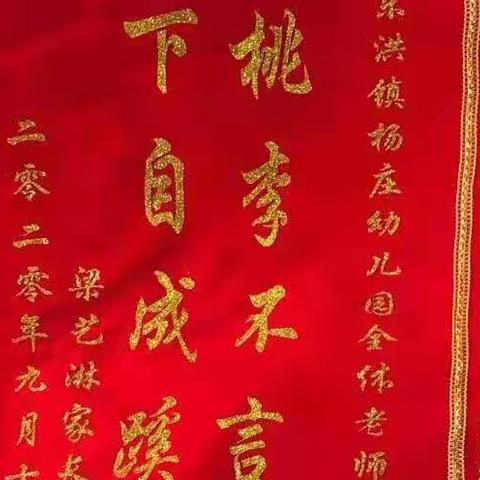 洪镇杨庄幼儿园全体老师
桃李不言
下自成蹊
梁艺淋家长
二零二零年九月十